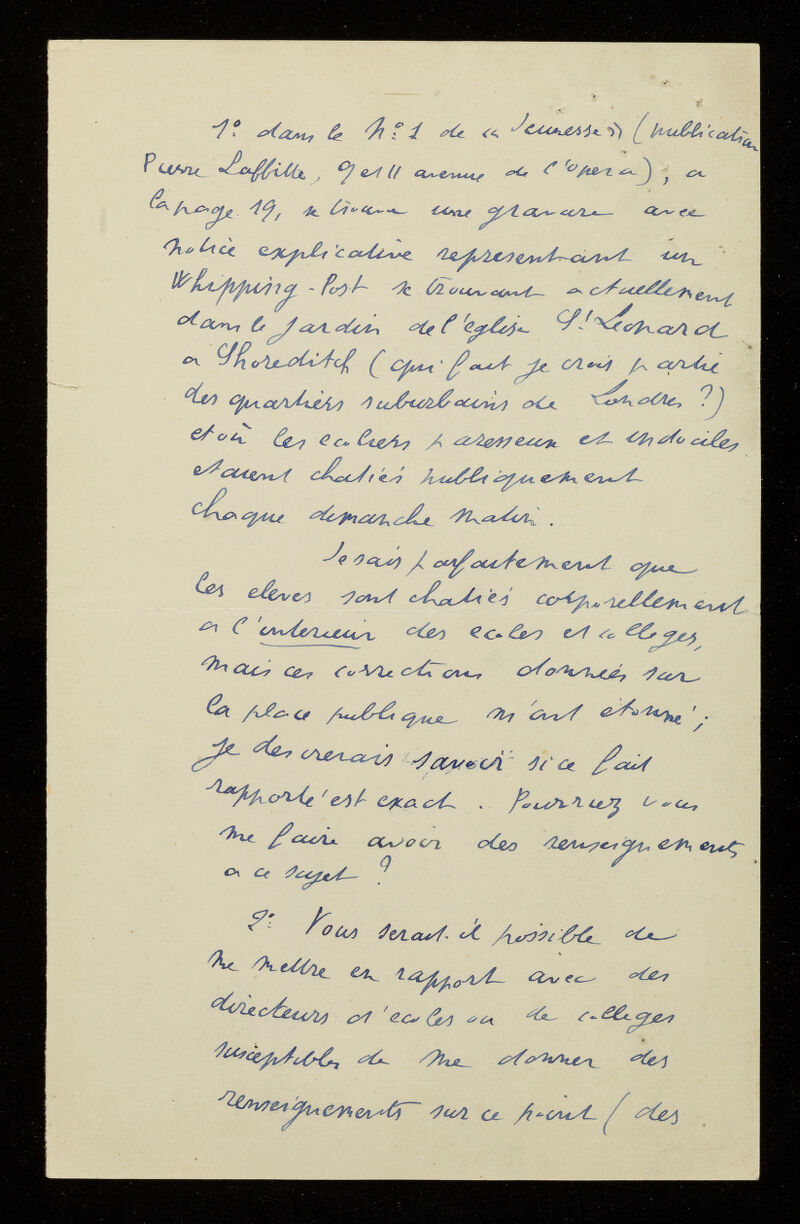 1º dans le Nº 1 de « Jeunesse » (publication
Pierre Laffitte, 9 et 11 avenue de l'opera), a
la page 19, se trouve une gravure avec
notice explicative representant un
Whipping-Post se trouvant actuellement
dans le jardin de l'eglise St Leonard
a Shoreditch (qui fait je crois partie
des quartiers suburbains de Londres ?)
et où les ecoliers paresseux et indociles
etaient chatiés publiquement
chaque dimanche matin.
Je sais parfaitement que
les eleves sont chatiés corporellement
a l'interieur des ecoles et colleges,
mais ces corrections données sur
la place publique m'ont étonné ;
je desirerais savoir si ce fait
rapporté est exact. Pourriez vous
me faire avoir des renseignements
a ce sujet ?
2º Vous serait-il possible de
me mettre en rapport avec des
directeurs d'ecoles ou de colleges
susceptibles de me donner des
renseignements sur ce point (des